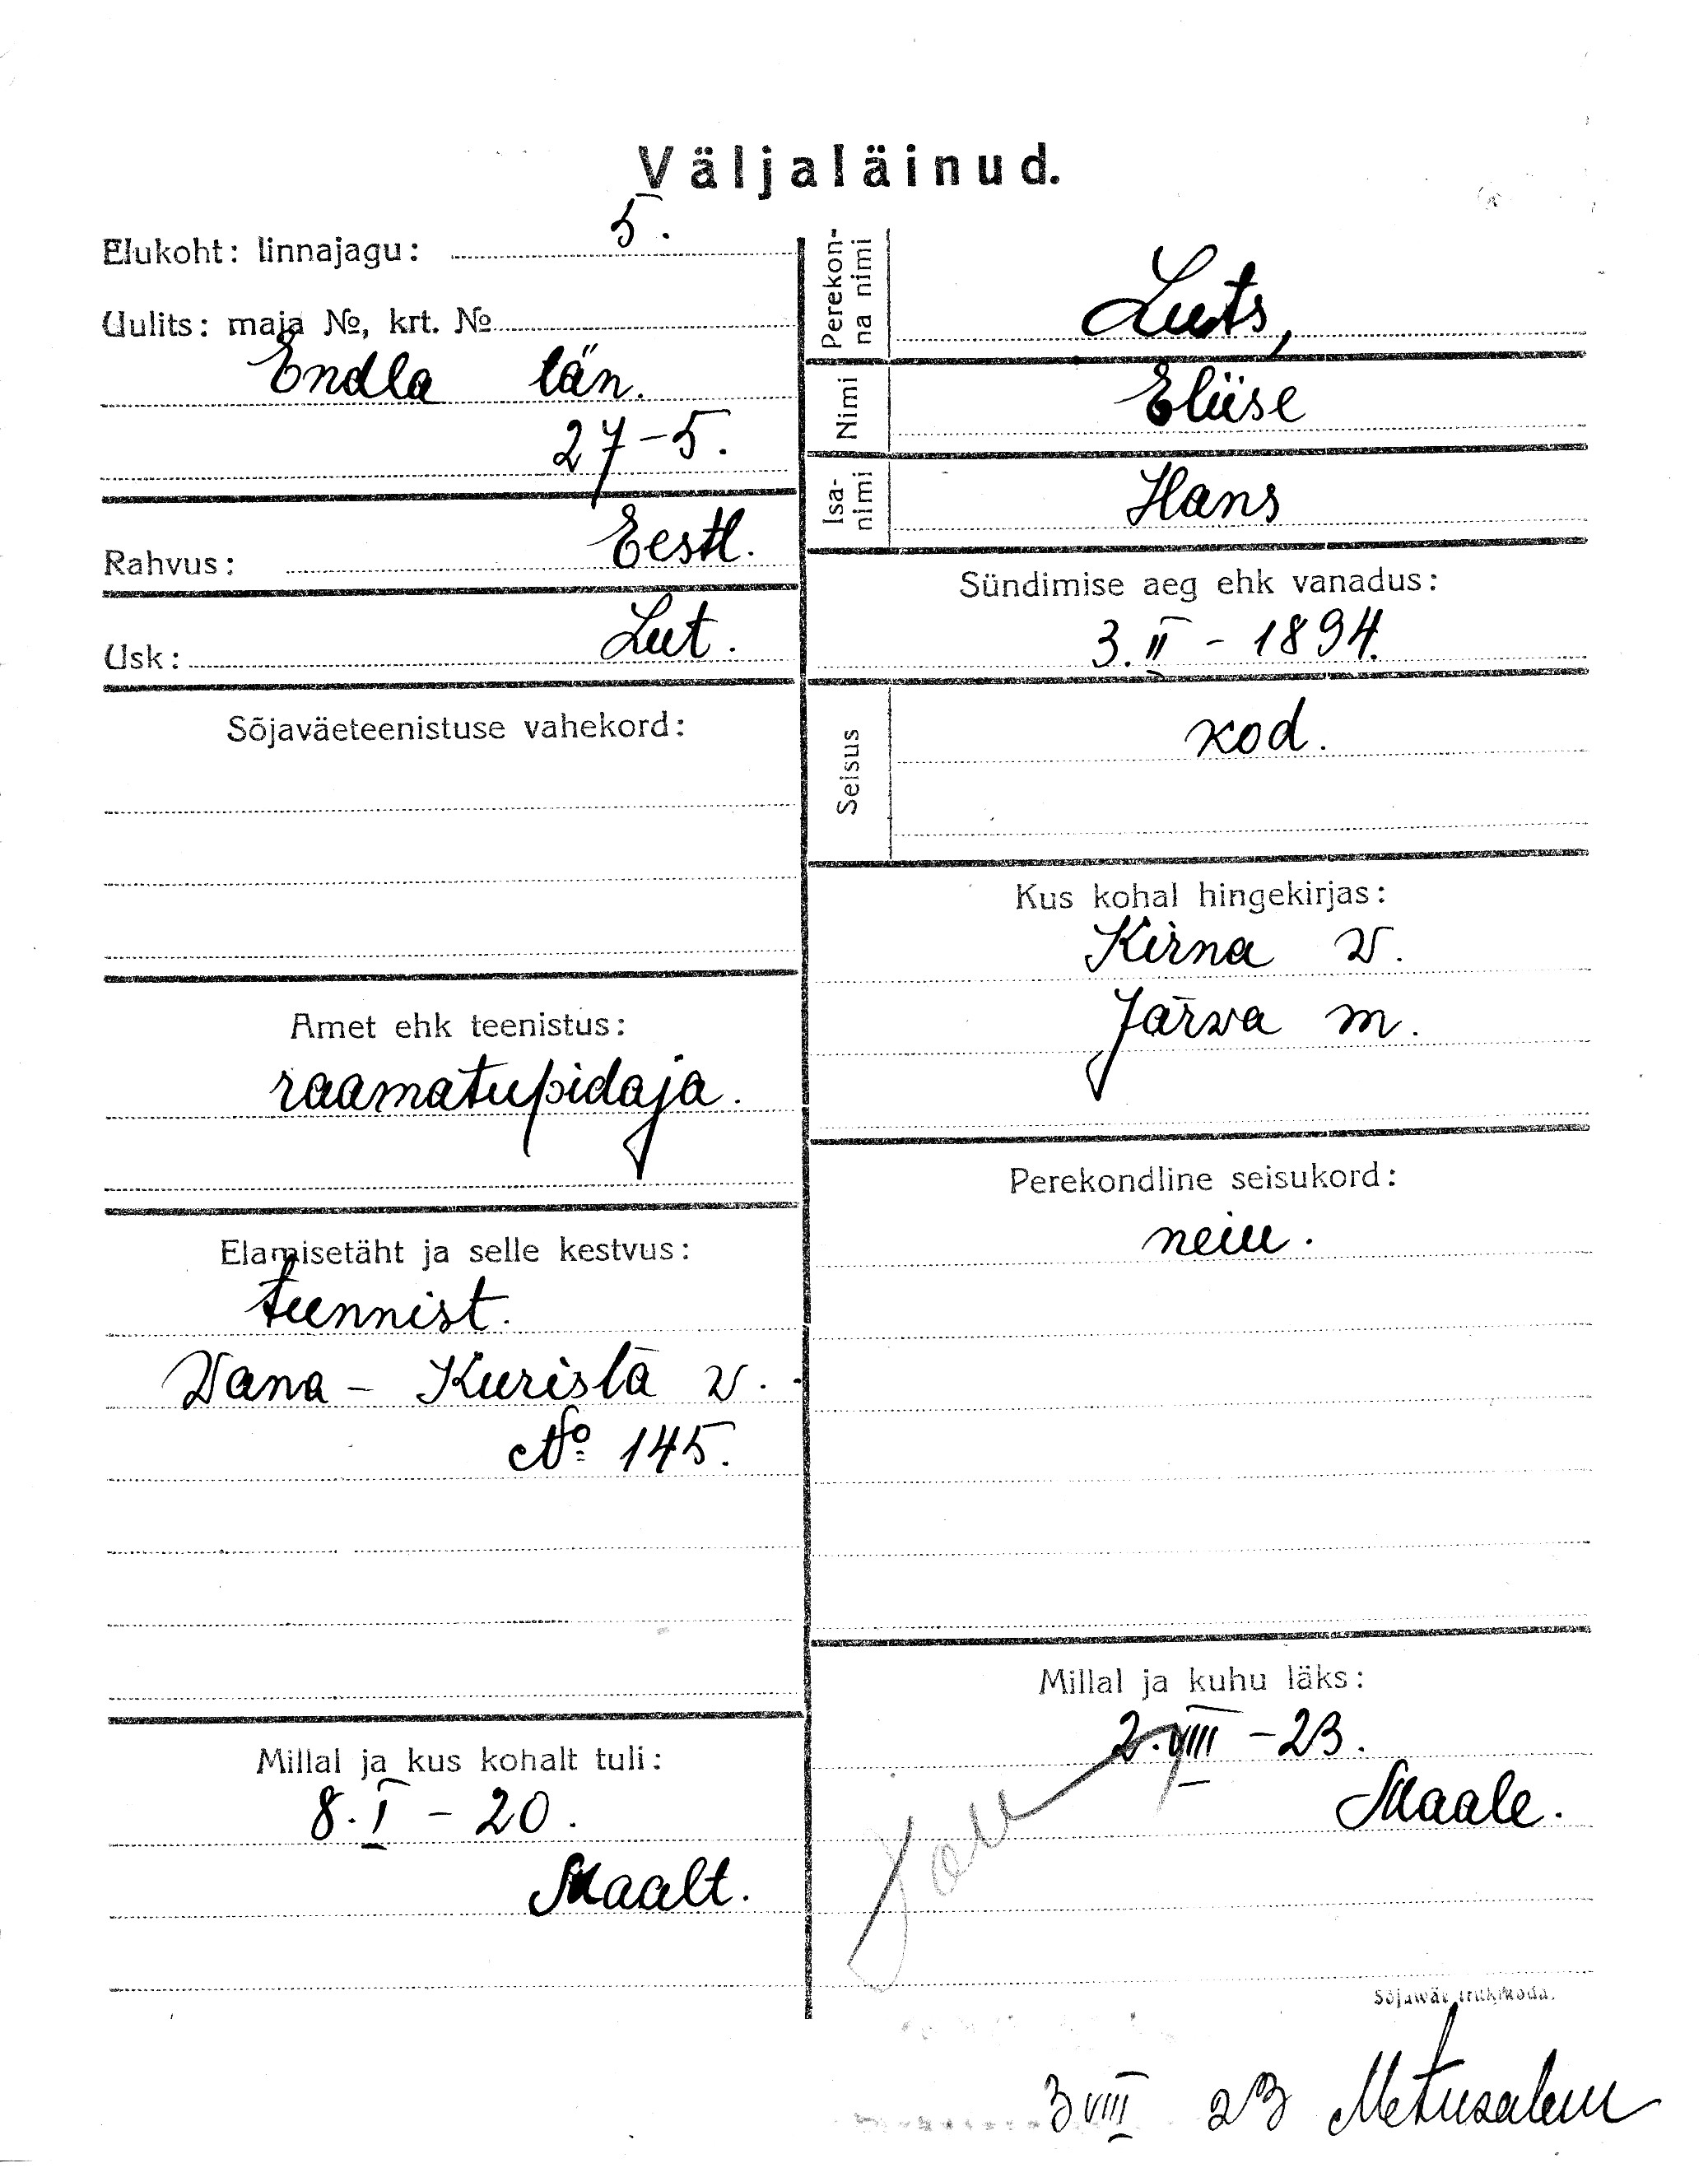 Väljaläinud.
Elukoht: linnajagu: 5.
Uulits: maja №, krt. №
Endla tän.
27-5.
Rahvus: Eestl.
Usk: Lut.
Sõjaväeteenistuse vahekord:
Amet ehk teenistus:
raamatupidaja.
Elamisetäht ja selle kestvus:
tunnist.
Vana-Kuristà v.
№ 145.
Millal ja kus kohalt tuli:
8.I-20.
Maalt.
Perekon-
na nimi
Luts,
Nimi
Eliise
Isa-
nimi
Hans
Sündimise aeg ehk vanadus:
3.II-1894.
Seisus
kod.
Kus kohal hingekirjas:
Kirna v.
Järva m.
Perekondline seisukord:
neiu.
Millal ja kuhu läks:
2.VIII-23.
Maale.
Sõjawäe trükikoda.
3 VIII 23 Metusalem